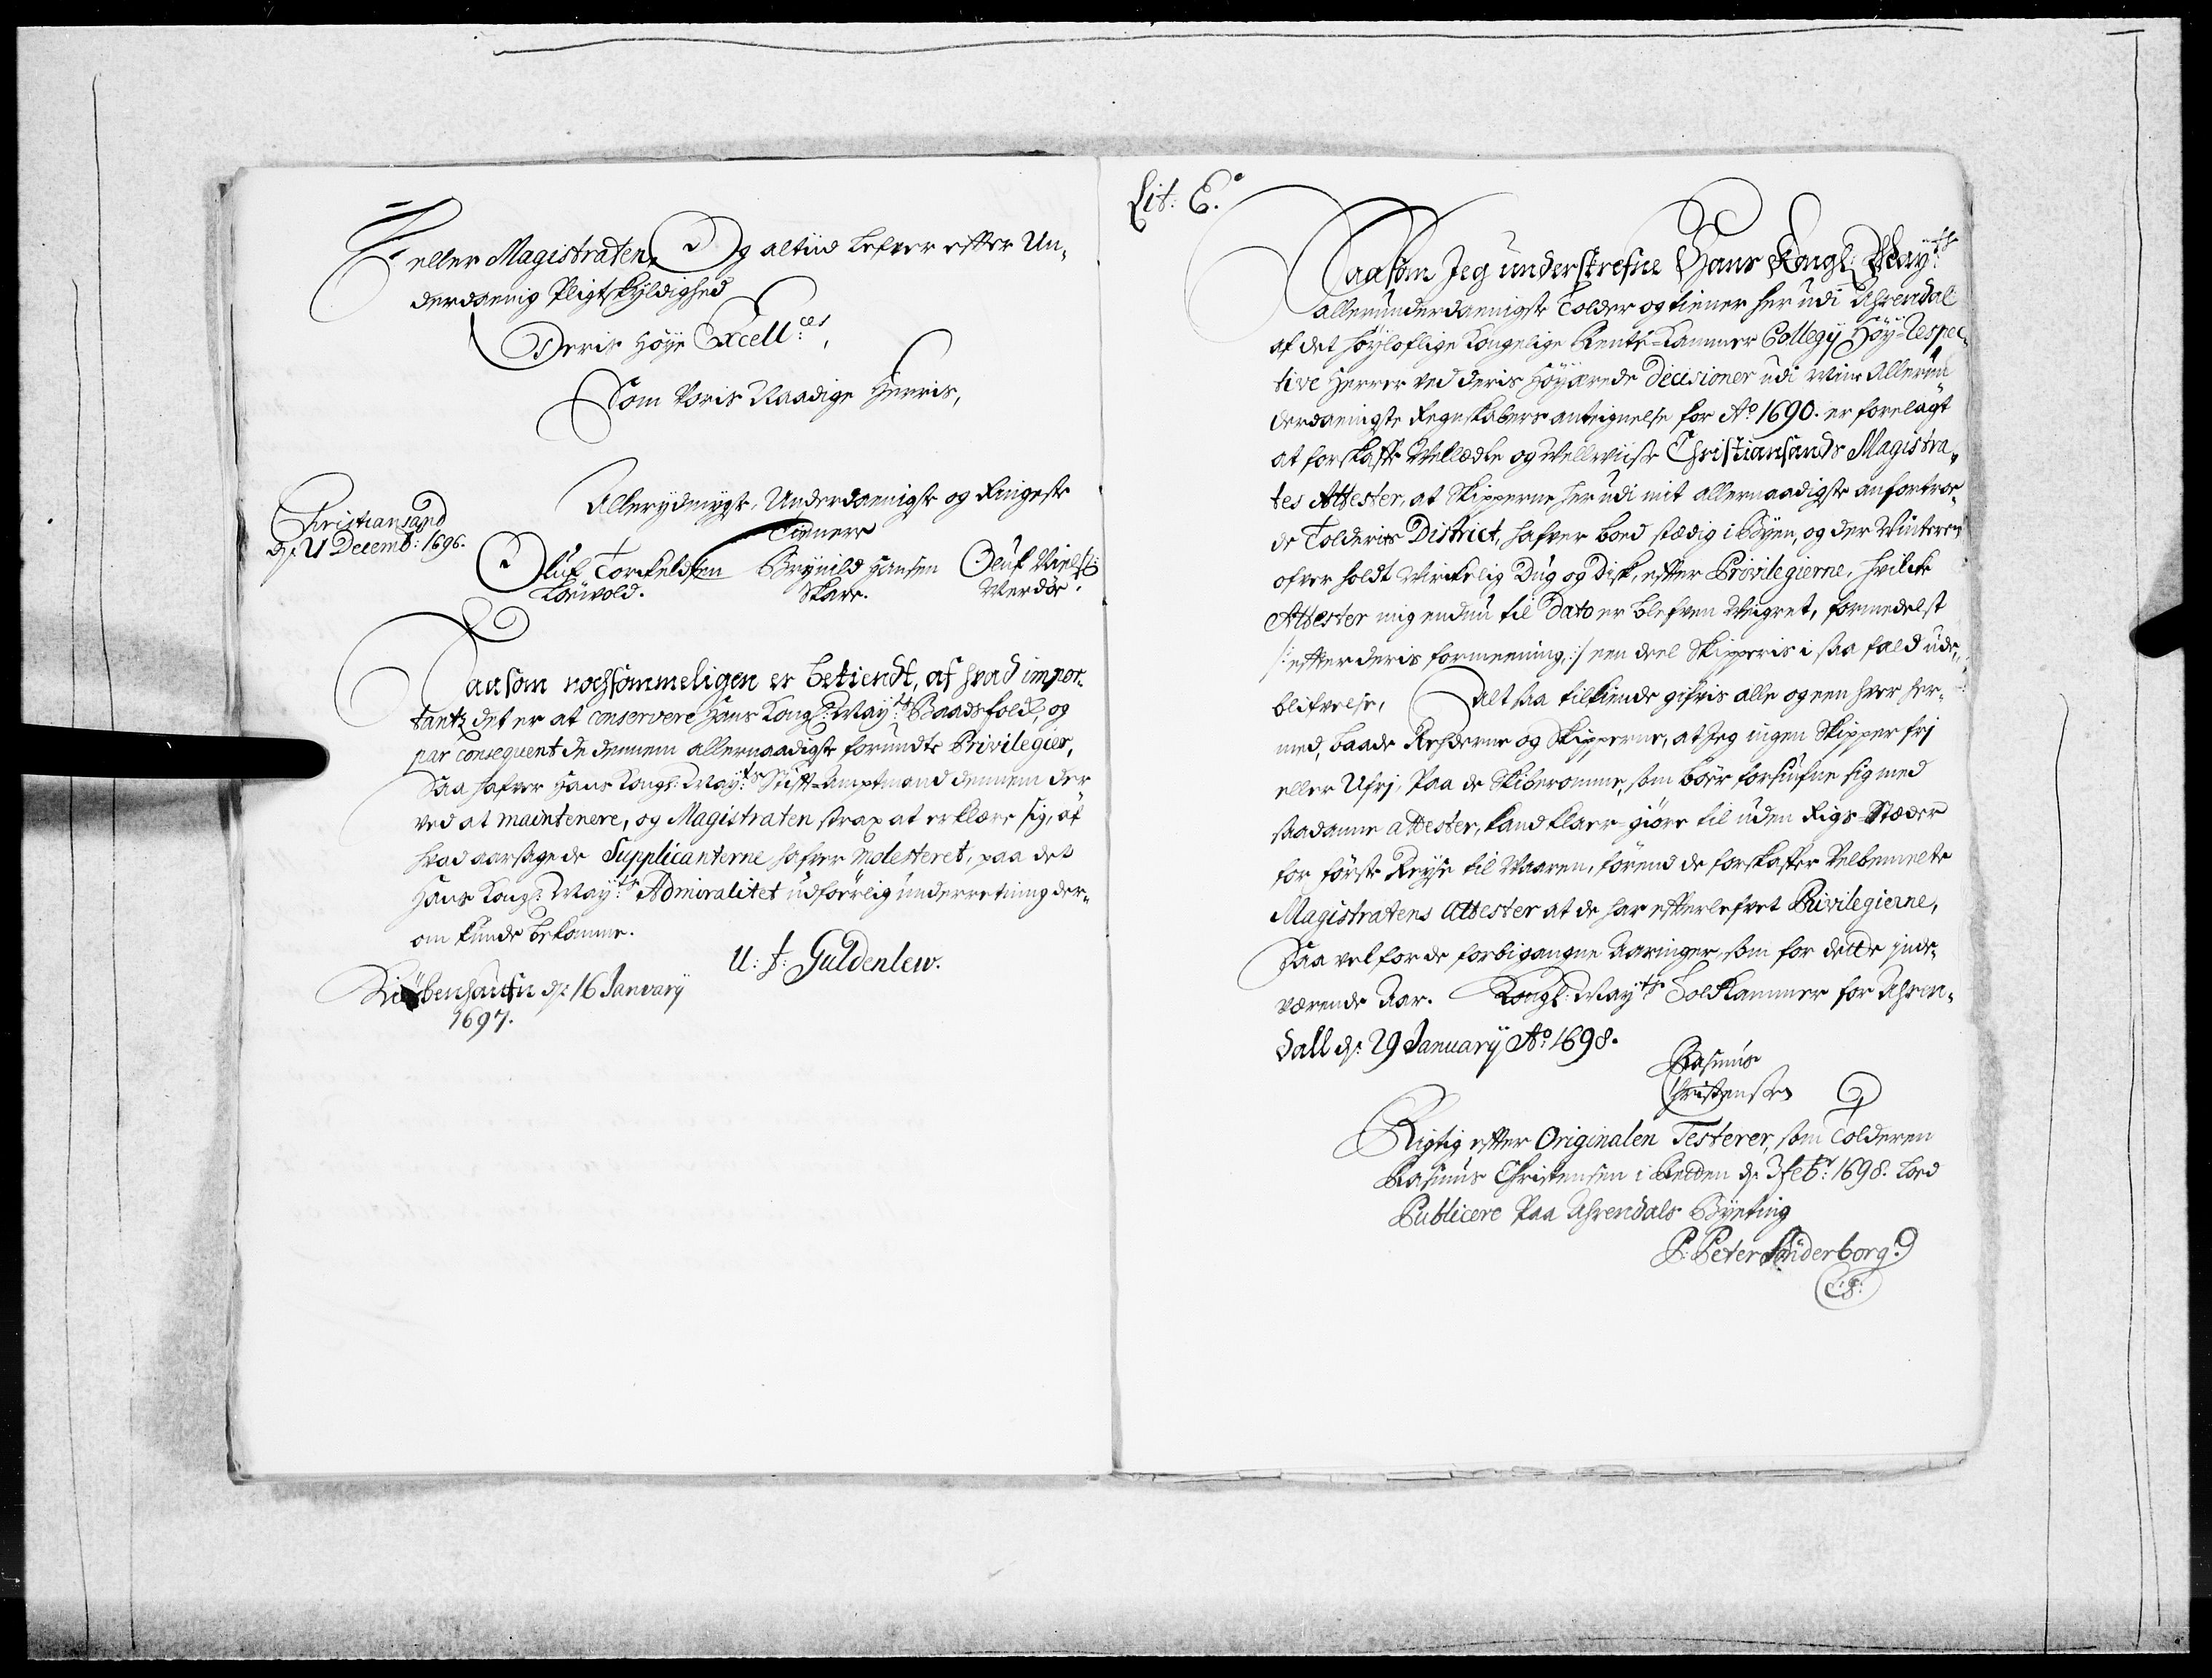 eller Magistraten, Og altiid lefver efter Un„
derdaenig Pligtskyldighed
Deris Høye Excell:ces,
Som Voris Naadige Herris,
Christiansand
d: 21 Decemb: 1696.
Allerydmygste, Underdaenigste og Ringeste
Tienere
Oluf Torckeldsen Brynild Hansen Oluf Niels:
Skare. Werdøe.
Saasom nochsommeligen er bekiendt, af hvad impor„
tantz det er at conservere Hans Kongl: May:ts Baadsfolck, og
par consequent de dennem allernaadigste forundte Privilegier,
Saa hafver Hans Kongl: May:ts Stift-Amptmand dennem der
ved at maintenere, og Magistraten strax at erklære sig, af
hvad aarsage de Supplicanterne hafver molesteret, paa det
Hans Kongl: May:ts Admiralitet udførlig underretning der„
om kunde bekomme.
U: f: Guldenlew.
Kiøbenhaufn d: 16 January
1697.
Lit: E.
Saasom Jeg underskrefne Hans Kongl: May:ts
allerunderdaenigste Tolder og tiener her udi Ahrendal
af det høyloflige Kongelige Rente-Kammer Collegy Høy-respec„
tive Herrer ved deris Høyærede Decisioner udi Mine Allerun
derdaenigste Regnskabers antegnelse for Ao 1690. er forelagt
at forskaffe Velædle og Wellviise Christiansands Magistra„
tes Attester, at Skipperne her udi mit allernaadigste anfortroe„
de Tolderie District, hafver boed stædig i Byen, og der Winteren
ofver holdt Wirckelig Dug og Disk, efter Privilegierne, hvilcke
Attester mig endnu til Dato er blefven Weigret, formedelst
/: efter deris formeening, :/ een deel Skipperis i saa fald ude„
blifvelse, Alt saa tilkiende gifvis alle og een hver her„
med, baade Rehderne og Skipperne, at Jeg ingen Skipper frj
eller Ufrj, Paa de Skiberomme, som bør forsiufne sig med
saadanne attester, kand klaer-giøre til uden Rigs-Stæder
for første Reyse til Waaren, førend de forskaffer Velbemelte
Magistratens Attester at de har efterlefvet Privilegierne,
Saa vel for de forbigangne Aaringer, som for dette inde„
værende Aar. Kongl: May:ts Toldkammer for Ahren„
dall d: 29 January Ao 1698.
Rasmus
Christensen
Rigtig efter Originalen Testerer, som Tolderen
Rasmus Christensen i Retten d: 3 feb: 1698. loed
Publicere Paa Ahrendals Byeting
P: Peter Sünderborg.